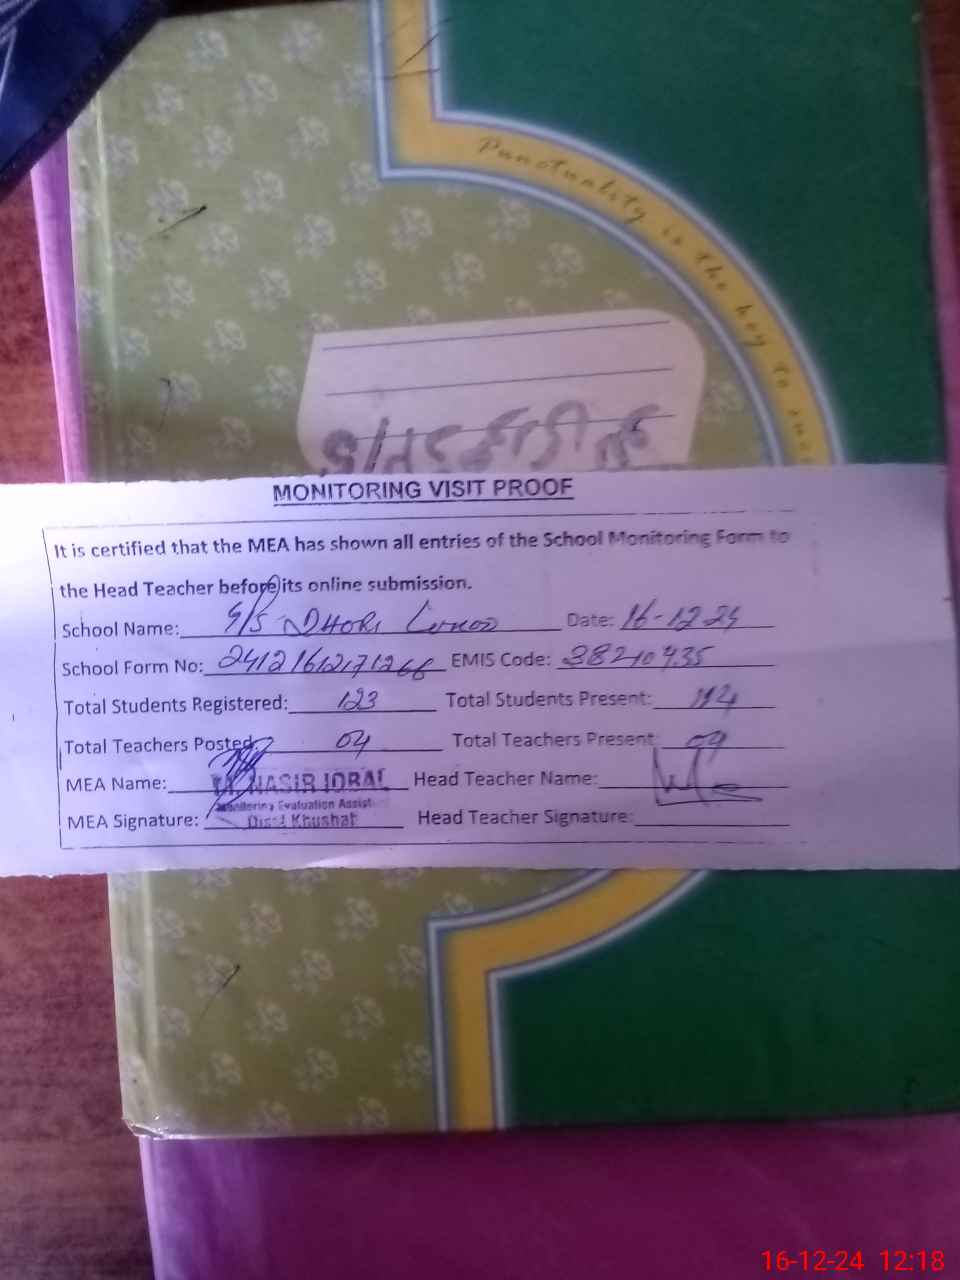 Punctuality is the key to
MONITORING VISIT PROOF
It is certified that the MEA has shown all entries of the School Monitoring Form to
the Head Teacher before its online submission.
School Name: G/S DHORI Date: 16-12-24
School Form No: EMIS Code: 38210435
Total Students Registered: 123 Total Students Present: 114
Total Teachers Posted: 04 Total Teachers Present: 04
MEA Name: M. NASIR IQBAL Head Teacher Name:
Monitoring Evaluation Assist
MEA Signature: Distt Khushab Head Teacher Signature:
16-12-24 12:18